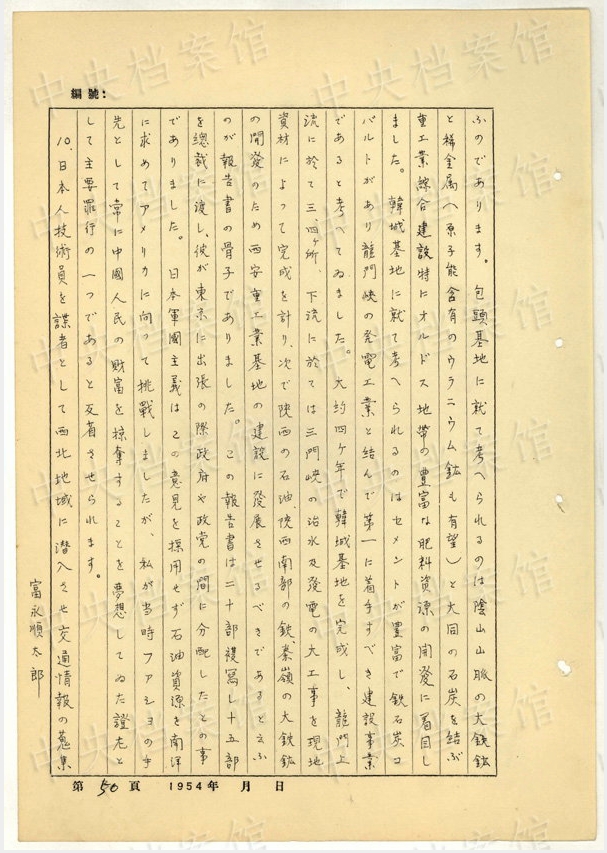 編號：
ふのであります。包頭基地に就て考へられるのは陰山山脈の大鉄鉱
と稀金属（原子能含有のウラニウム鉱も有望）と大同の石炭を結ぶ
重工業綜合建設特にオルドス地帯の豊富な肥料資源の開発に着目し
ました。韓城基地に就て考へられるのはセメントが豊富で鉄石炭コ
バルトがあり龍門峡の発電工業と結んで第一に着手すべき建設事業
であると考へてゐました。大約四ヶ年で韓城基地を完成し、龍門上
流に於て三、四ヶ所、下流に於ては三門峡の治水及發電の大工事を現地
資材によって完成を計り、次で陝西の石油、陝西南部の鉄、秦嶺の大鉄鉱
の開發のため西安重工業基地の建設に発展させるべきであると云ふ
のが報告書の骨子でありました。この報告書は二十部複寫し十五部
を總裁に渡し、彼が東京に出張の際政府や政党の間に分配したとの事
でありました。日本軍國主義はこの意見を採用せず石油資源を南洋
に求めてアメリカに向って挑戦しましたが、私が当時ファショの手
先として常に中國人民の財富を掠奪することを夢想してゐた證左と
して主要罪行の一つであると反省させられます。
10、日本人技術員を諜者として西北地域に潜入させ交通情報の蒐集
富永順太郎
第 50 頁 1954年 月 日
中央档案馆